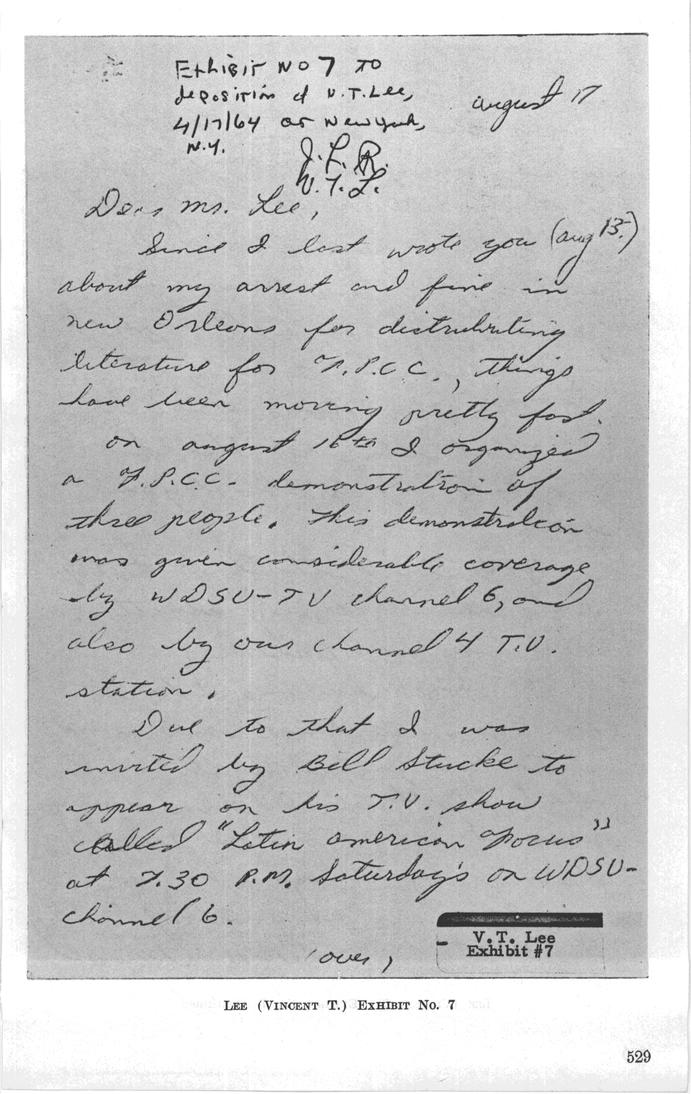 Exhibit No 7 to
deposition of V.T. Lee,
4/17/64 at New York,
N.Y.
august 17
J.L.R.
V.T.L.
Dear Mr. Lee,
Since I last wrote you (aug 13.)
about my arrest and fine in
new Orleans for distrubuting
literature for F.P.C.C., things
have been moving pretty fast.
on august 16th I organized
a F.P.C.C. demonstration of
three people. This demonstration
was given considerable coverage
by WDSU-TV channel 6, and
also by our channel 4 T.V.
station.
Due to that I was
invited by Bill Stucke to
appear on his T.V. show
called "Latin american Focus"
at 7.30 P.M. Saturday's on WDSU-
channel 6.
(over)
V. T. Lee
Exhibit #7
LEE (VINCENT T.) EXHIBIT No. 7
529